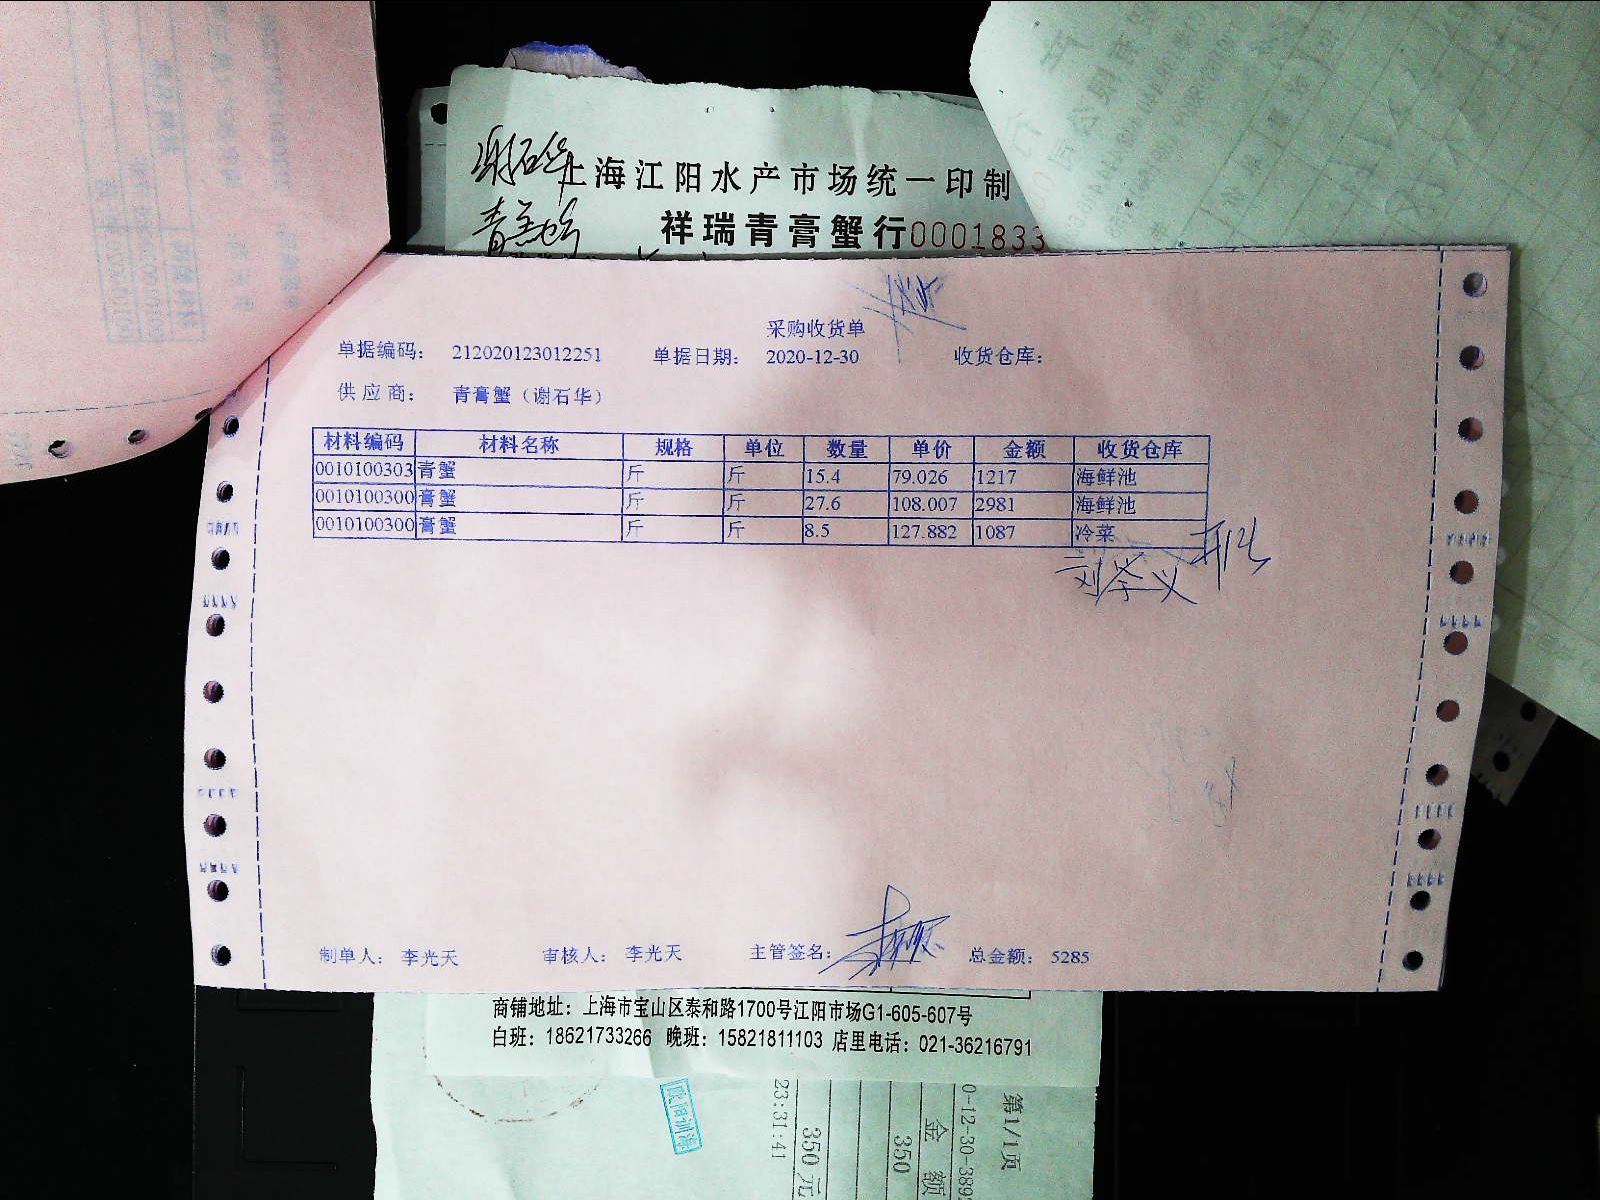 谢石华
上海江阳水产市场统一印制
青膏蟹
祥瑞青膏蟹行0001833
采购收货单
单据编码： 212020123012251 单据日期： 2020-12-30 收货仓库：
供应商： 青膏蟹（谢石华）
材料编码 材料名称 规格 单位 数量 单价 金额 收货仓库
0010100303 青蟹 斤 斤 15.4 79.026 1217 海鲜池
0010100300 膏蟹 斤 斤 27.6 108.007 2981 海鲜池
0010100300 膏蟹 斤 斤 8.5 127.882 1087 冷菜
制单人： 李光天 审核人： 李光天 主管签名： 总金额： 5285
商铺地址：上海市宝山区泰和路1700号江阳市场G1-605-607号
白班：18621733266 晚班：15821811103 店里电话：021-36216791
第1/1页
0-12-30-389
金 额
350
350元
23:31:41